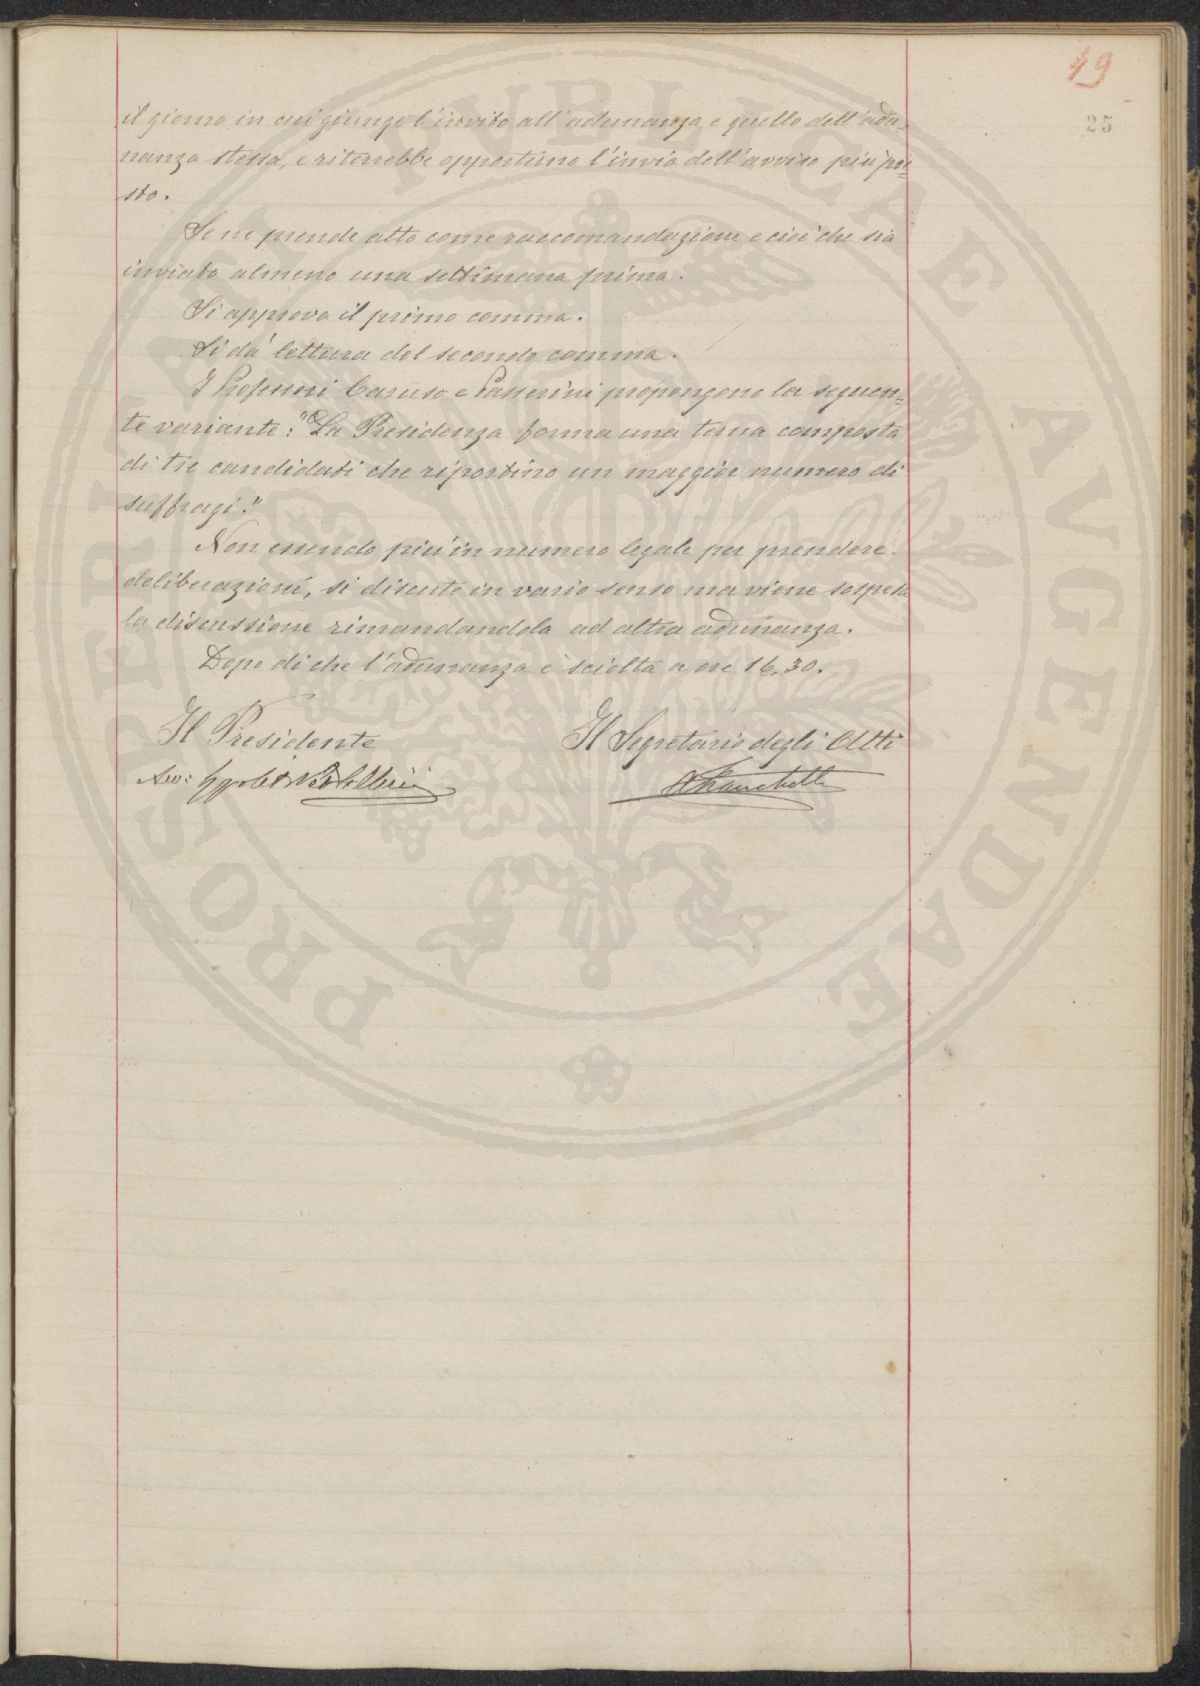 49
25
il giorno in cui giunge l'invito all'adunanza e quello dell'adu-
nanza stessa, e riterrebbe opportuno l'invio dell'avviso più pre=
sto.
Se ne prende atto come raccomandazione e cioè che sia
inviato almeno una settimana prima.
Si approva il primo comma.
Si dà lettura del secondo comma.
I Professori Caruso e Passerini propongono la seguen=
te variante: "La Presidenza forma una terna composta
di tre candidati che riportino un maggior numero di
suffragi."
Non essendo più in numero legale per prendere
deliberazioni, si discute in vario senso ma viene sospesa
la discussione rimandandola ad altra adunanza.
Dopo di che l'adunanza è sciolta a ore 16,30.
Il Presidente
Il Segretario degli Atti
PROSPERITATI PUBLICAE AVGENDAE